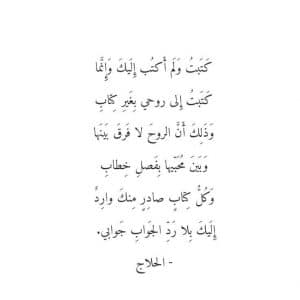 كَتَبتُ وَلَم أَكتُب إِلَيكَ وَإِنَّما
كَتَبتُ إِلى روحي بِغَيرِ كِتابِ
وَذَلِكَ أَنَّ الروحَ لا فَرقَ بَينَها
وَبَينَ مُحَبّيها بِفَصلِ خِطابِ
وَكُلُّ كِتابٍ صادِرٍ مِنكَ وارِدٌ
إِلَيكَ بِلا رَدِّ الجَوابِ جَوابي.
- الحلاج